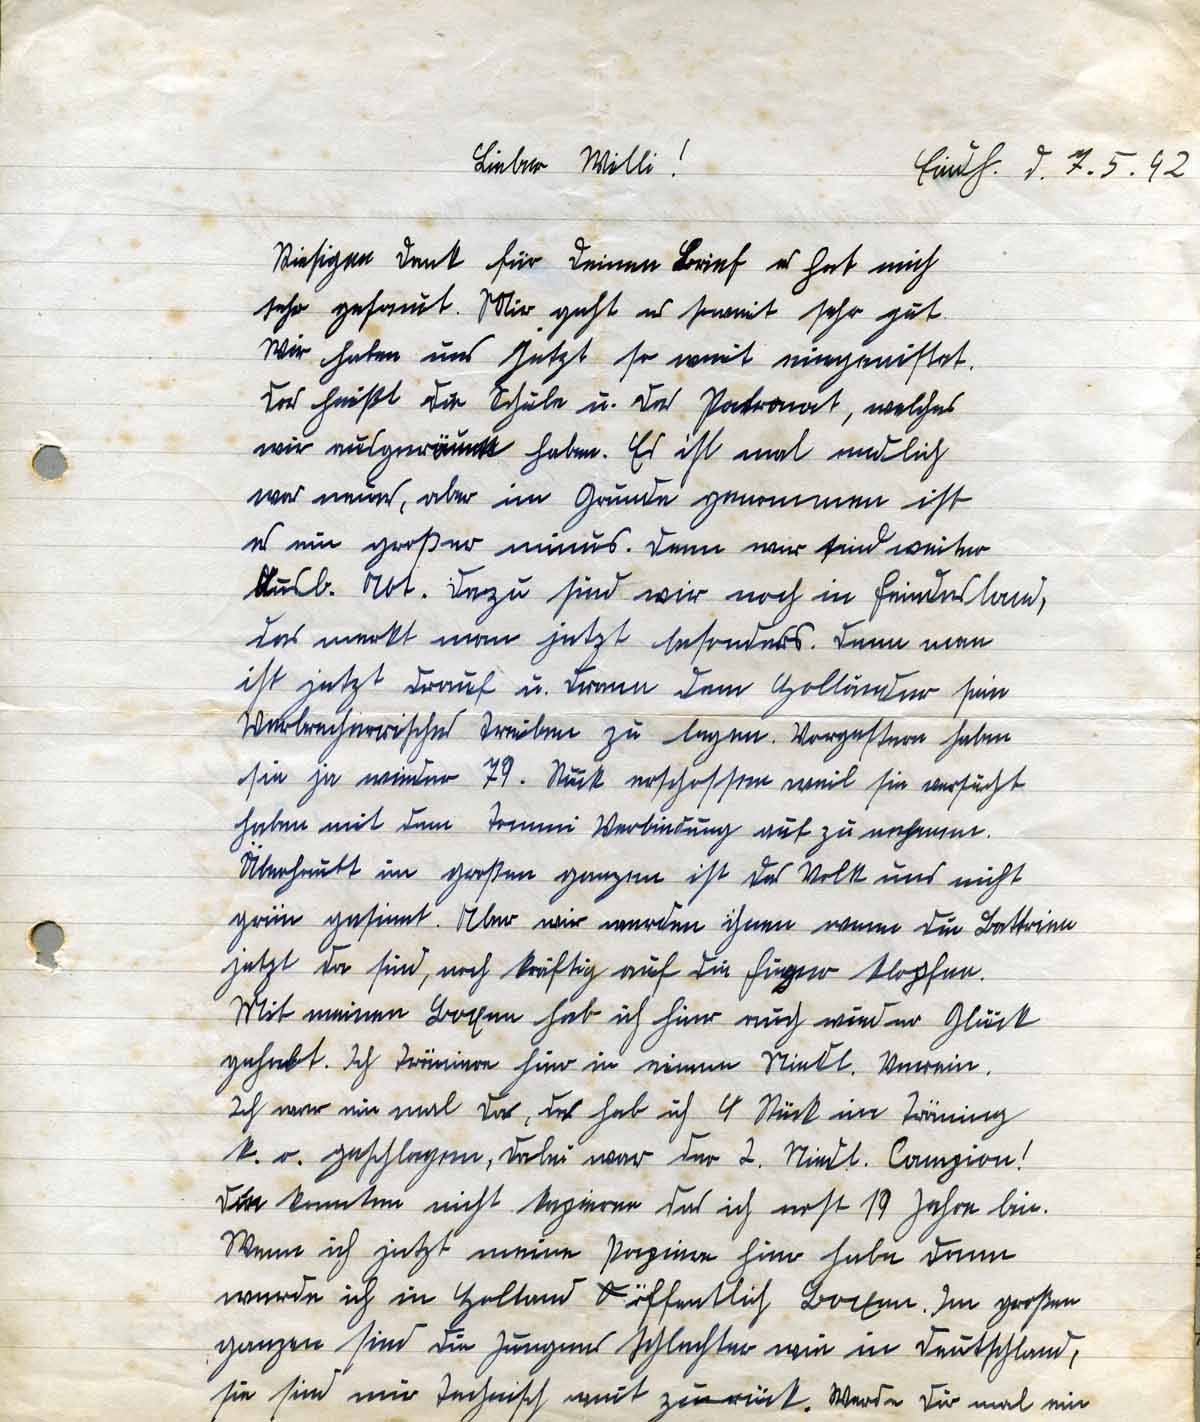 Lieber Willi!
Eindh. d. 7.5.42
Riesigen Dank für Deinen Brief es hat mich
sehr gefreut. Mir geht es soweit sehr gut
Wir haben uns jetzt so weit eingenistet.
Das heißt die Schule u. das Patronat, welches
wir ausgeräumt haben. Es ist mal endlich
was neues, aber im Grunde genommen ist
es ein großer minus. Denn wir sind weiter
Ausb. Abt. Dazu sind wir noch in Feindesland,
das merkt man jetzt besonders. Denn man
ist jetzt drauf u. drann dem Holländer sein
Verbrecherrisches treiben zu legen. Vorgestern haben
sie ja wieder 79. Stück erschossen weil sie versucht
haben mit dem Tommi Verbindung auf zu nehmen.
Überhaubt im großen ganzen ist das Volk uns nicht
grün gesinnt. Aber wir werden ihnen wenn die Battrien
jetzt da sind, noch kräftig auf die Finger klopfen.
Mit meinen Boxen hab ich hier auch wieder Glück
gehabt. Ich träniere hier in einem Niedl. Verein.
Ich war ein mal da, das hab ich 4 Stück im Träning
k. o. geschlagen, dabei war der 2. Niedl. Campion!
Die konnten nicht kapieren das ich erst 19 Jahre bin.
Wenn ich jetzt meine Papiere hier habe dann
werde ich in Holland öffentlich Boxen. Im großen
ganzen sind die Jungens schlechter wie in Deutschland,
sie sind nur Technisch weit zurück. Werde Dir mal ein